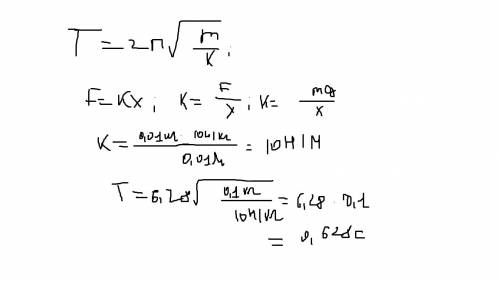 T=2π√m/K;
F=Kx; K=F/x; K=mg/x
K=0,01кг·10Н/кг/0,01м=10Н/М
T=6,28√0,1кг/10Н/м=6,28·0,1
=0,628с